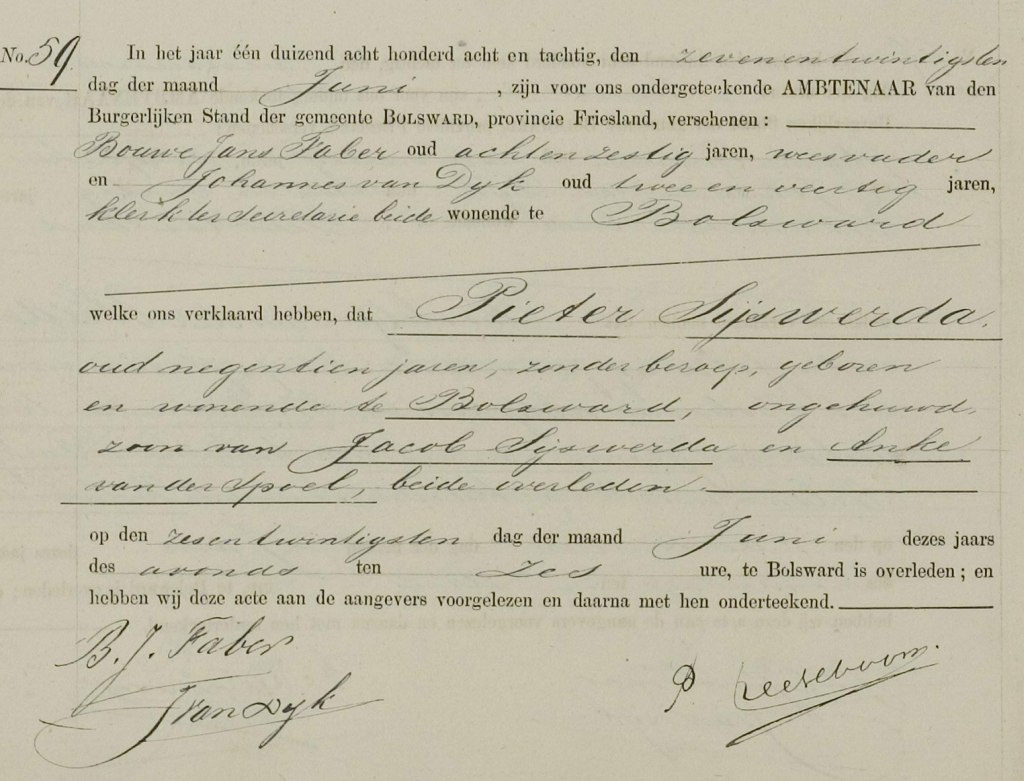 No. 59.
In het jaar één duizend acht honderd acht en tachtig, den zevenentwintigsten
dag der maand Juni, zijn voor ons ondergeteekende AMBTENAAR van den
Burgerlijken Stand der gemeente BOLSWARD, provincie Friesland, verschenen:
Bouwe Jans Faber oud achtenzestig jaren, weesvader
en Johannes van Dyk oud twee en veertig jaren,
klerk ter secretarie beide wonende te Bolsward
welke ons verklaard hebben, dat Pieter Sijswerda,
oud negentien jaren, zonder beroep, geboren
en wonende te Bolsward, ongehuwd,
zoon van Jacob Sijswerda en Anke
van der Spoel, beide overleden.
op den zesentwintigsten dag der maand Juni dezes jaars
des avonds ten zes ure, te Bolsward is overleden; en
hebben wij deze acte aan de aangevers voorgelezen en daarna met hen onderteekend.
B. J. Faber
J van Dyk